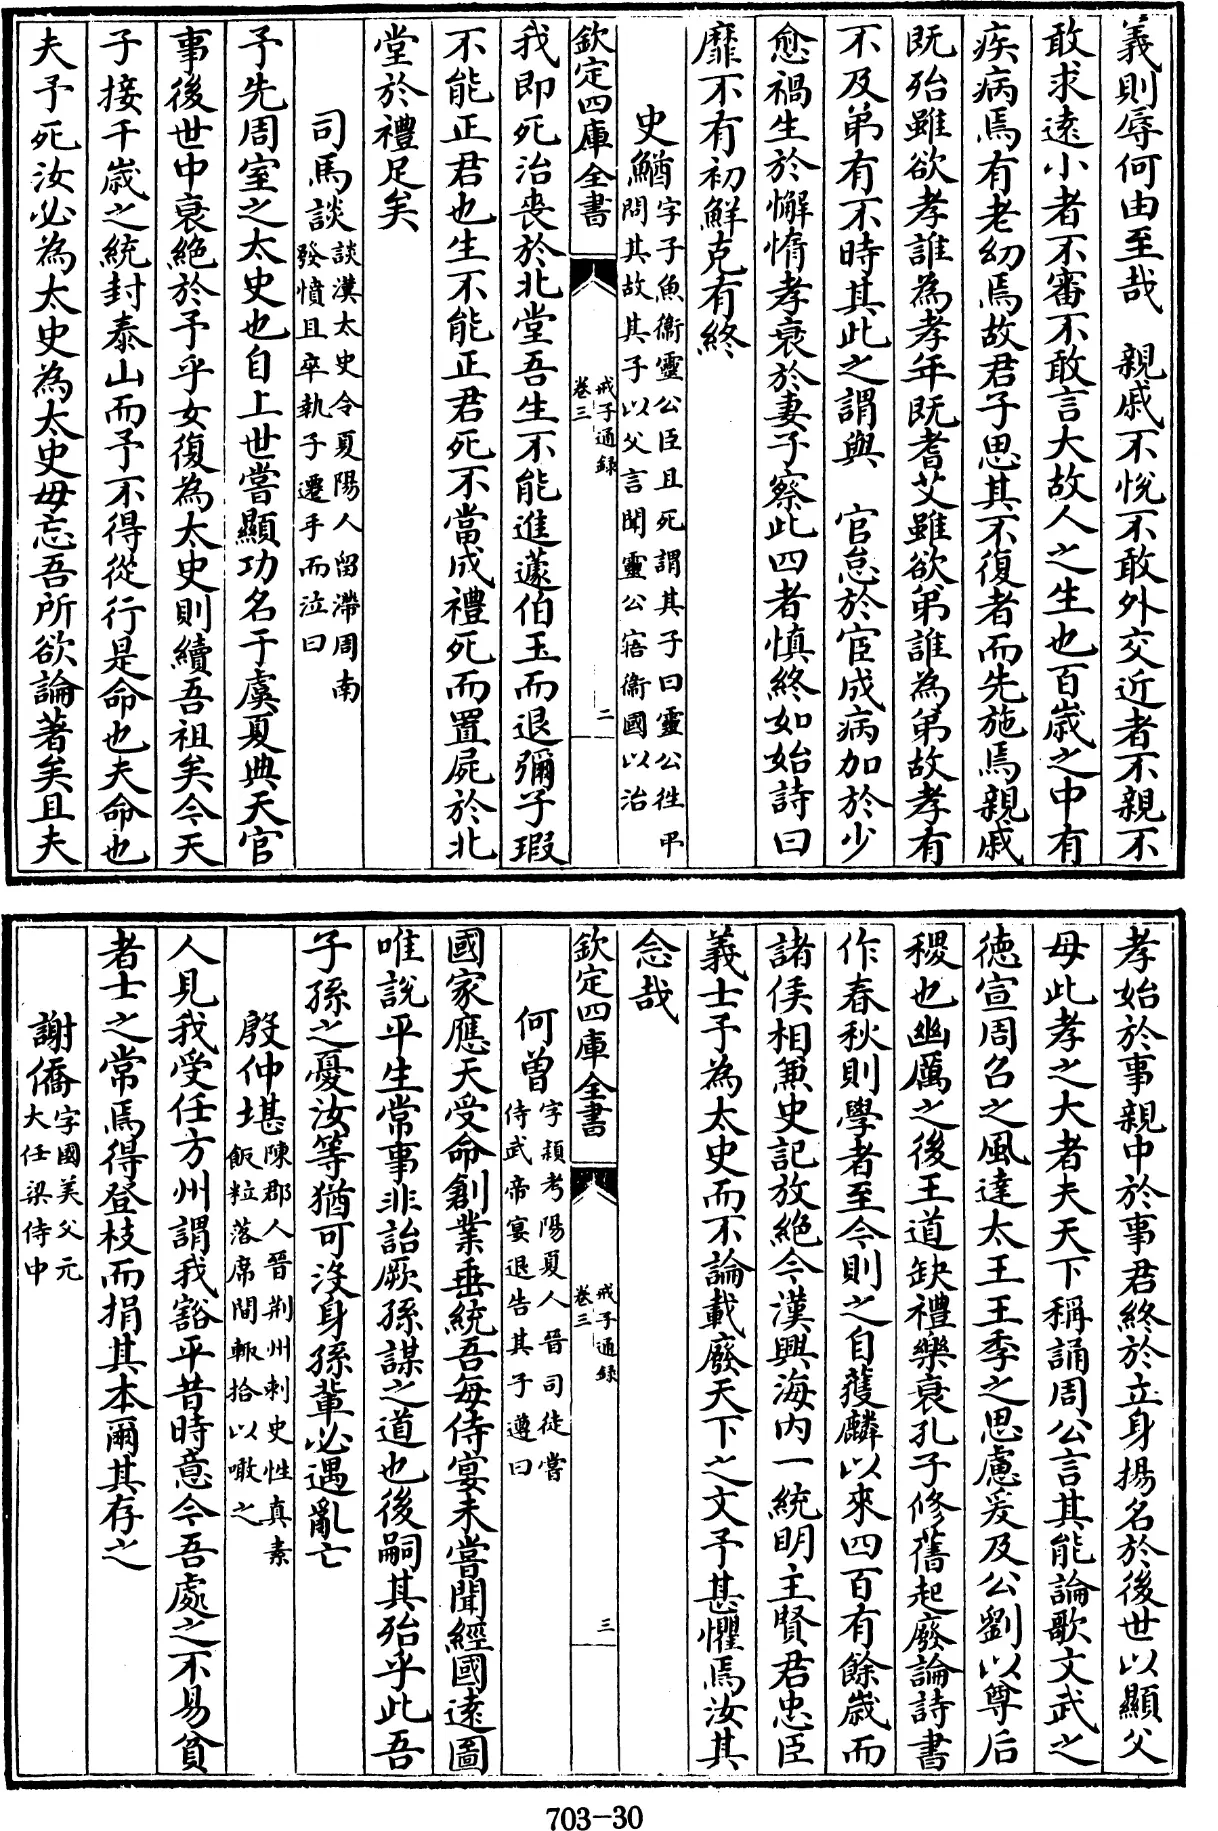 義則辱何由至哉　親戚不悅不敢外交近者不親不
敢求遠小者不審不敢言大故人之生也百歲之中有
疾病焉有老幼焉故君子思其不復者而先施焉親戚
既殆雖欲孝誰為孝年既耆艾雖欲弟誰為弟故孝有
不及弟有不時其此之謂與　官怠於宦成病加於少
愈禍生於懈惰孝衰於妻子察此四者慎終如始詩曰
靡不有初鮮克有終
史鰌字子魚衞靈公臣且死謂其子曰靈公徃弔
問其故其子以父言聞靈公寤衞國以治
欽定四庫全書
戒子通録
卷三
二
我即死治喪於北堂吾生不能進蘧伯玉而退彌子瑕
不能正君也生不能正君死不當成禮死而置屍於北
堂於禮足矣
司馬談談漢太史令夏陽人留滯周南
發憤且卒執子遷手而泣曰
予先周室之太史也自上世嘗顯功名于虞夏典天官
事後世中衰絕於予乎女復為太史則續吾祖矣今天
子接千歲之統封泰山而予不得從行是命也夫命也
夫予死汝必為太史為太史毋忘吾所欲論著矣且夫
孝始於事親中於事君終於立身揚名於後世以顯父
母此孝之大者夫天下稱誦周公言其能論歌文武之
德宣周召之風達太王王季之思慮爰及公劉以尊后
稷也幽厲之後王道缺禮樂衰孔子修舊起廢論詩書
作春秋則學者至今則之自獲麟以來四百有餘歲而
諸侯相兼史記放絕今漢興海内一統明主賢君忠臣
義士予為太史而不論載廢天下之文予甚懼焉汝其
念哉
欽定四庫全書
戒子通録
卷三
三
何曾字穎考陽夏人晉司徒嘗
侍武帝宴退告其子遵曰
國家應天受命創業垂統吾每侍宴未嘗聞經國遠圖
唯說平生常事非詒厥孫謀之道也後嗣其殆乎此吾
子孫之憂汝等猶可沒身孫輩必遇亂亡
殷仲堪陳郡人晉荆州刺史性真素
飯粒落席間輒拾以噉之
人見我受任方州謂我豁平昔時意今吾處之不易貧
者士之常焉得登枝而捐其本爾其存之
謝僑字國美父元
大任梁侍中
703-30